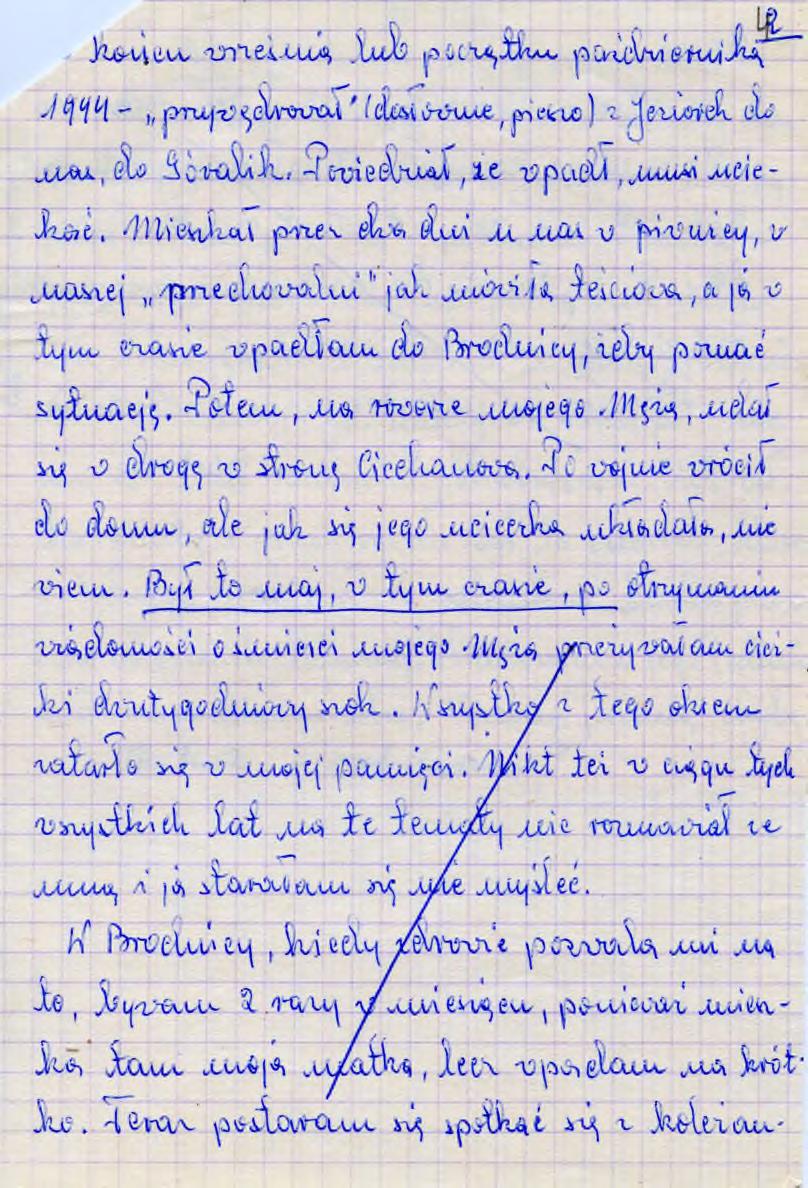 2
końcu września lub początku października
1944 - „przywędrował" (dosłownie, pieszo) z Jeziorek do
nas, do Góralik. Powiedział, że wpadł, musi ucie-
kać. Mieszkał przez dwa dni u nas w piwnicy, w
naszej „przechowalni" jak mówiła teściowa, a ja w
tym czasie wpadłam do Brodnicy, żeby poznać
sytuację. Potem, na rowerze mojego Męża, udał
się w drogę w stronę Ciechanowa. Po wojnie wrócił
do domu, ale jak się jego ucieczka układała, nie
wiem. Był to maj, w tym czasie, po otrzymaniu
wiadomości o śmierci mojego Męża przeżywałam cięż-
ki dwutygodniowy szok. Wszystko z tego okresu
zatarło się w mojej pamięci. Nikt też w ciągu tych
wszystkich lat na te tematy nie rozmawiał ze
mną i ja starałam się nie myśleć.
W Brodnicy, kiedy zdrowie pozwala mi na
to, bywam 2 razy w miesiącu, ponieważ miesz-
ka tam moja matka, lecz wpadam na krót-
ko. Teraz postaram się spotkać się z koleżan-